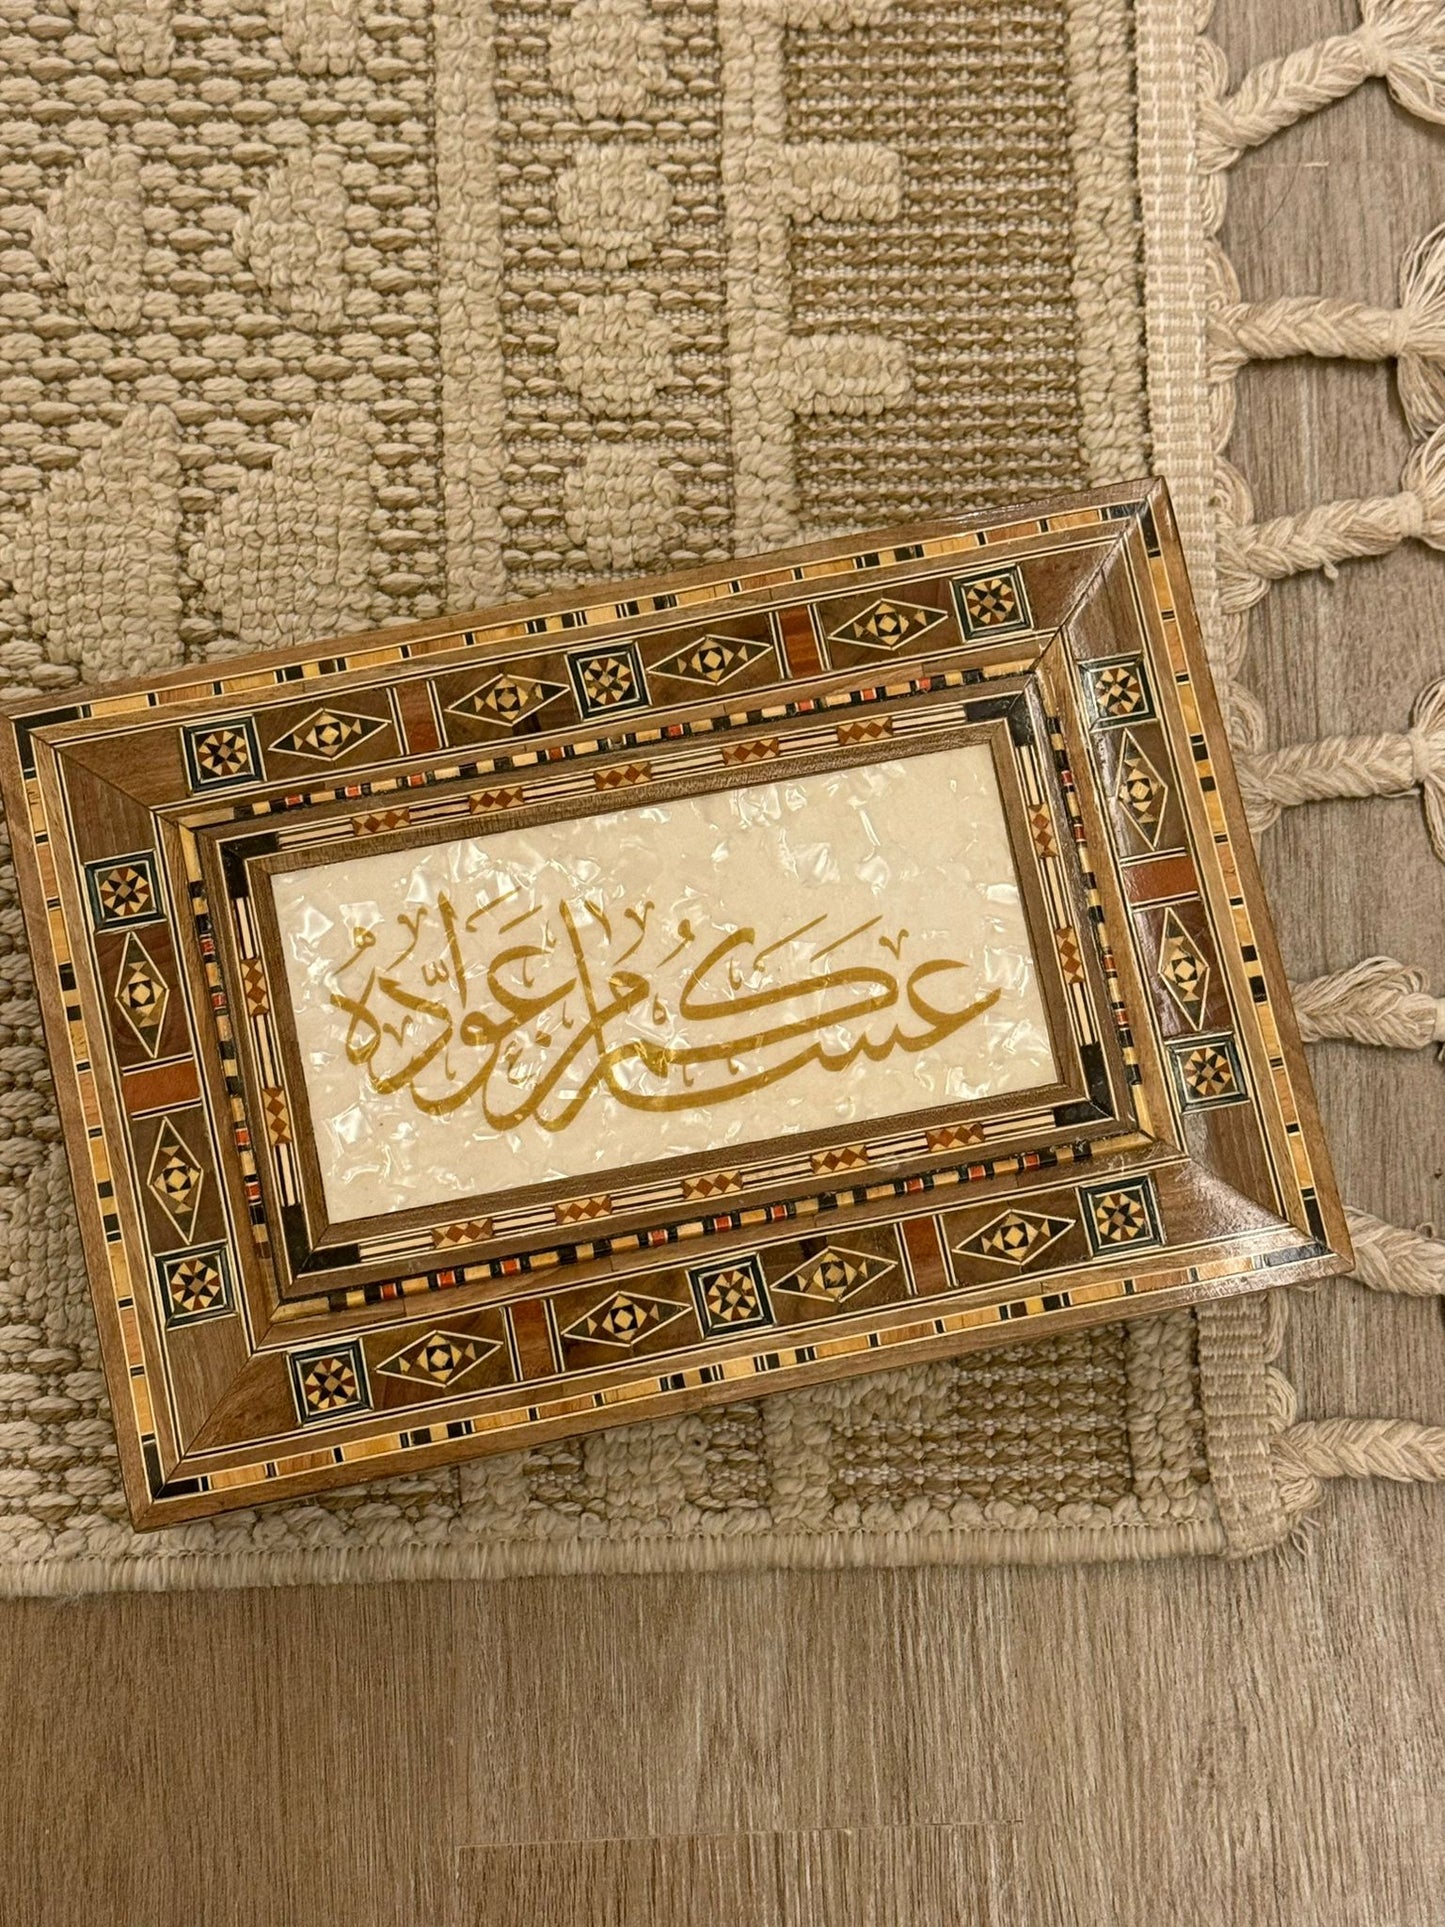 عساكم عوّادهُ